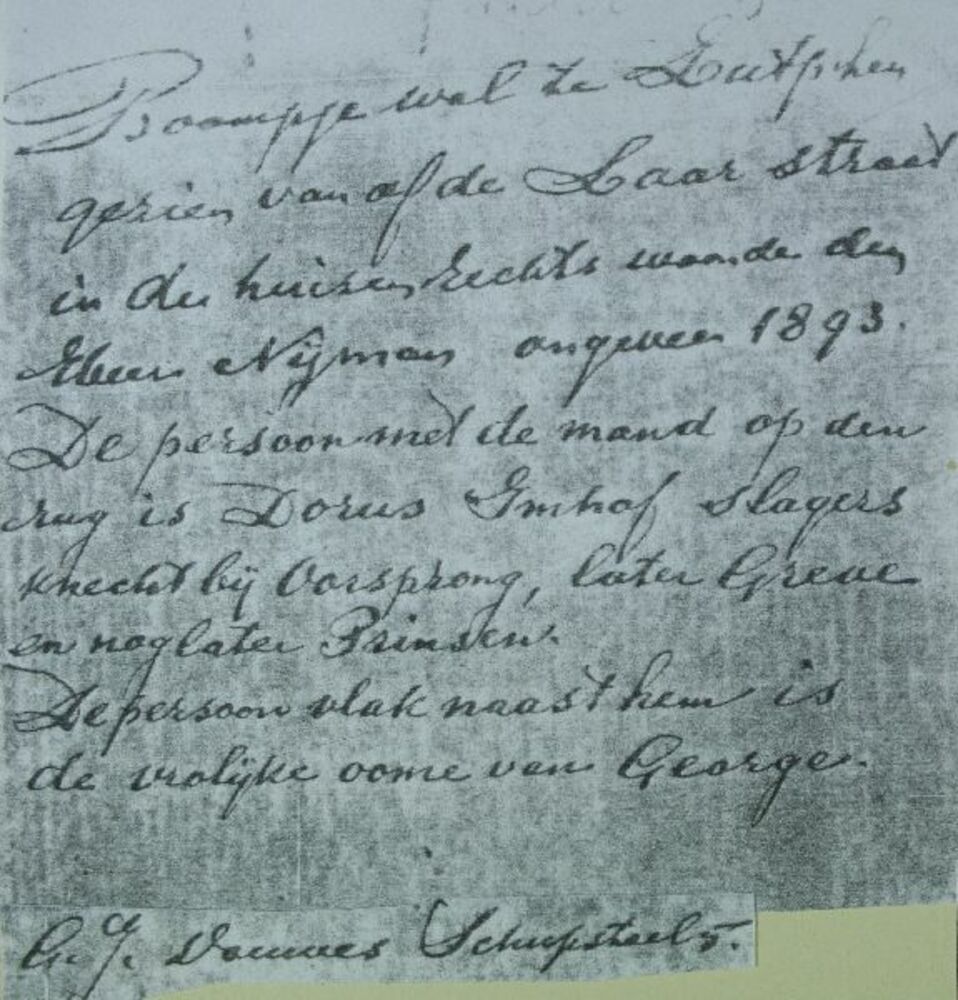 Boompje wal te Zutphen
gezien van af de Laar straat
in de huizen rechts woonde den
Heer Nijman ongeveer 1893.
De persoon met de mand op den
rug is Dorus Imhof slagers
knecht bij Vorsprong, later Greve
en nog later Prinsen.
De persoon vlak naast hem is
de vrolijke oome van George.
G. J. Douwes Schupsteel 5.